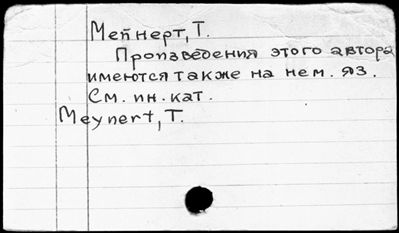 Мейнерт, Т.
Произведения этого автора
имеются также на нем. яз.
См. ин. кат.
Meynert, T.